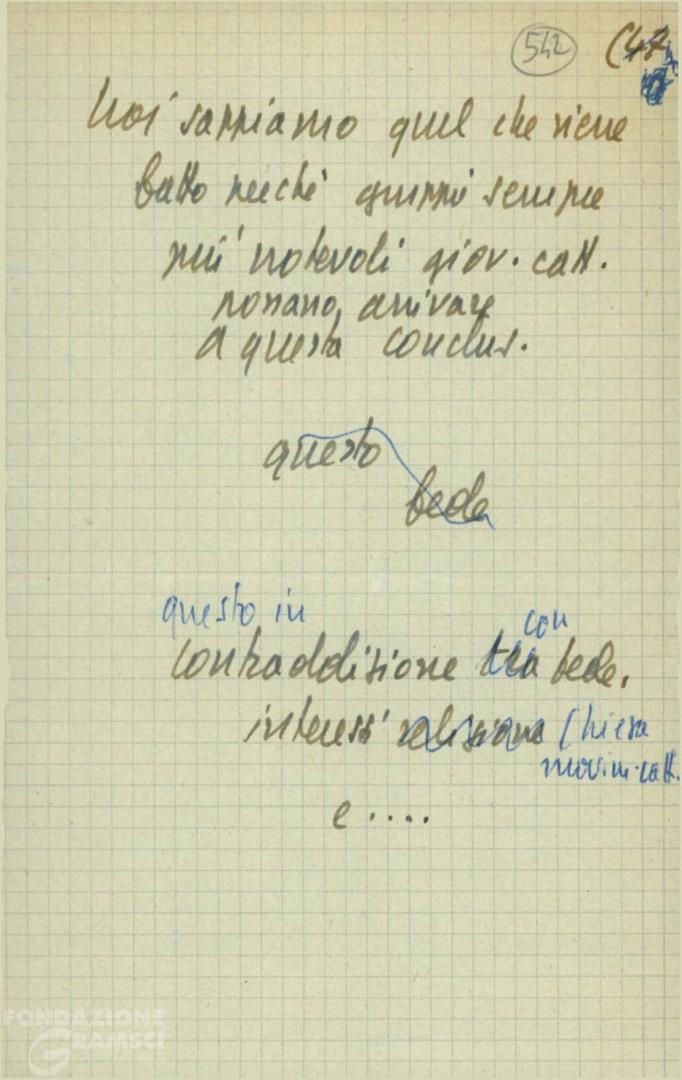 542 (47
Noi sappiamo quel che viene
fatto perché gruppi sempre
più notevoli giov. catt.
possano, arrivare
a questa conclus.
questo
fede
questo in
con
contraddizione tra fede,
interessi religione Chiesa
movim. catt.
e ....
FONDAZIONE
GRAMSCI